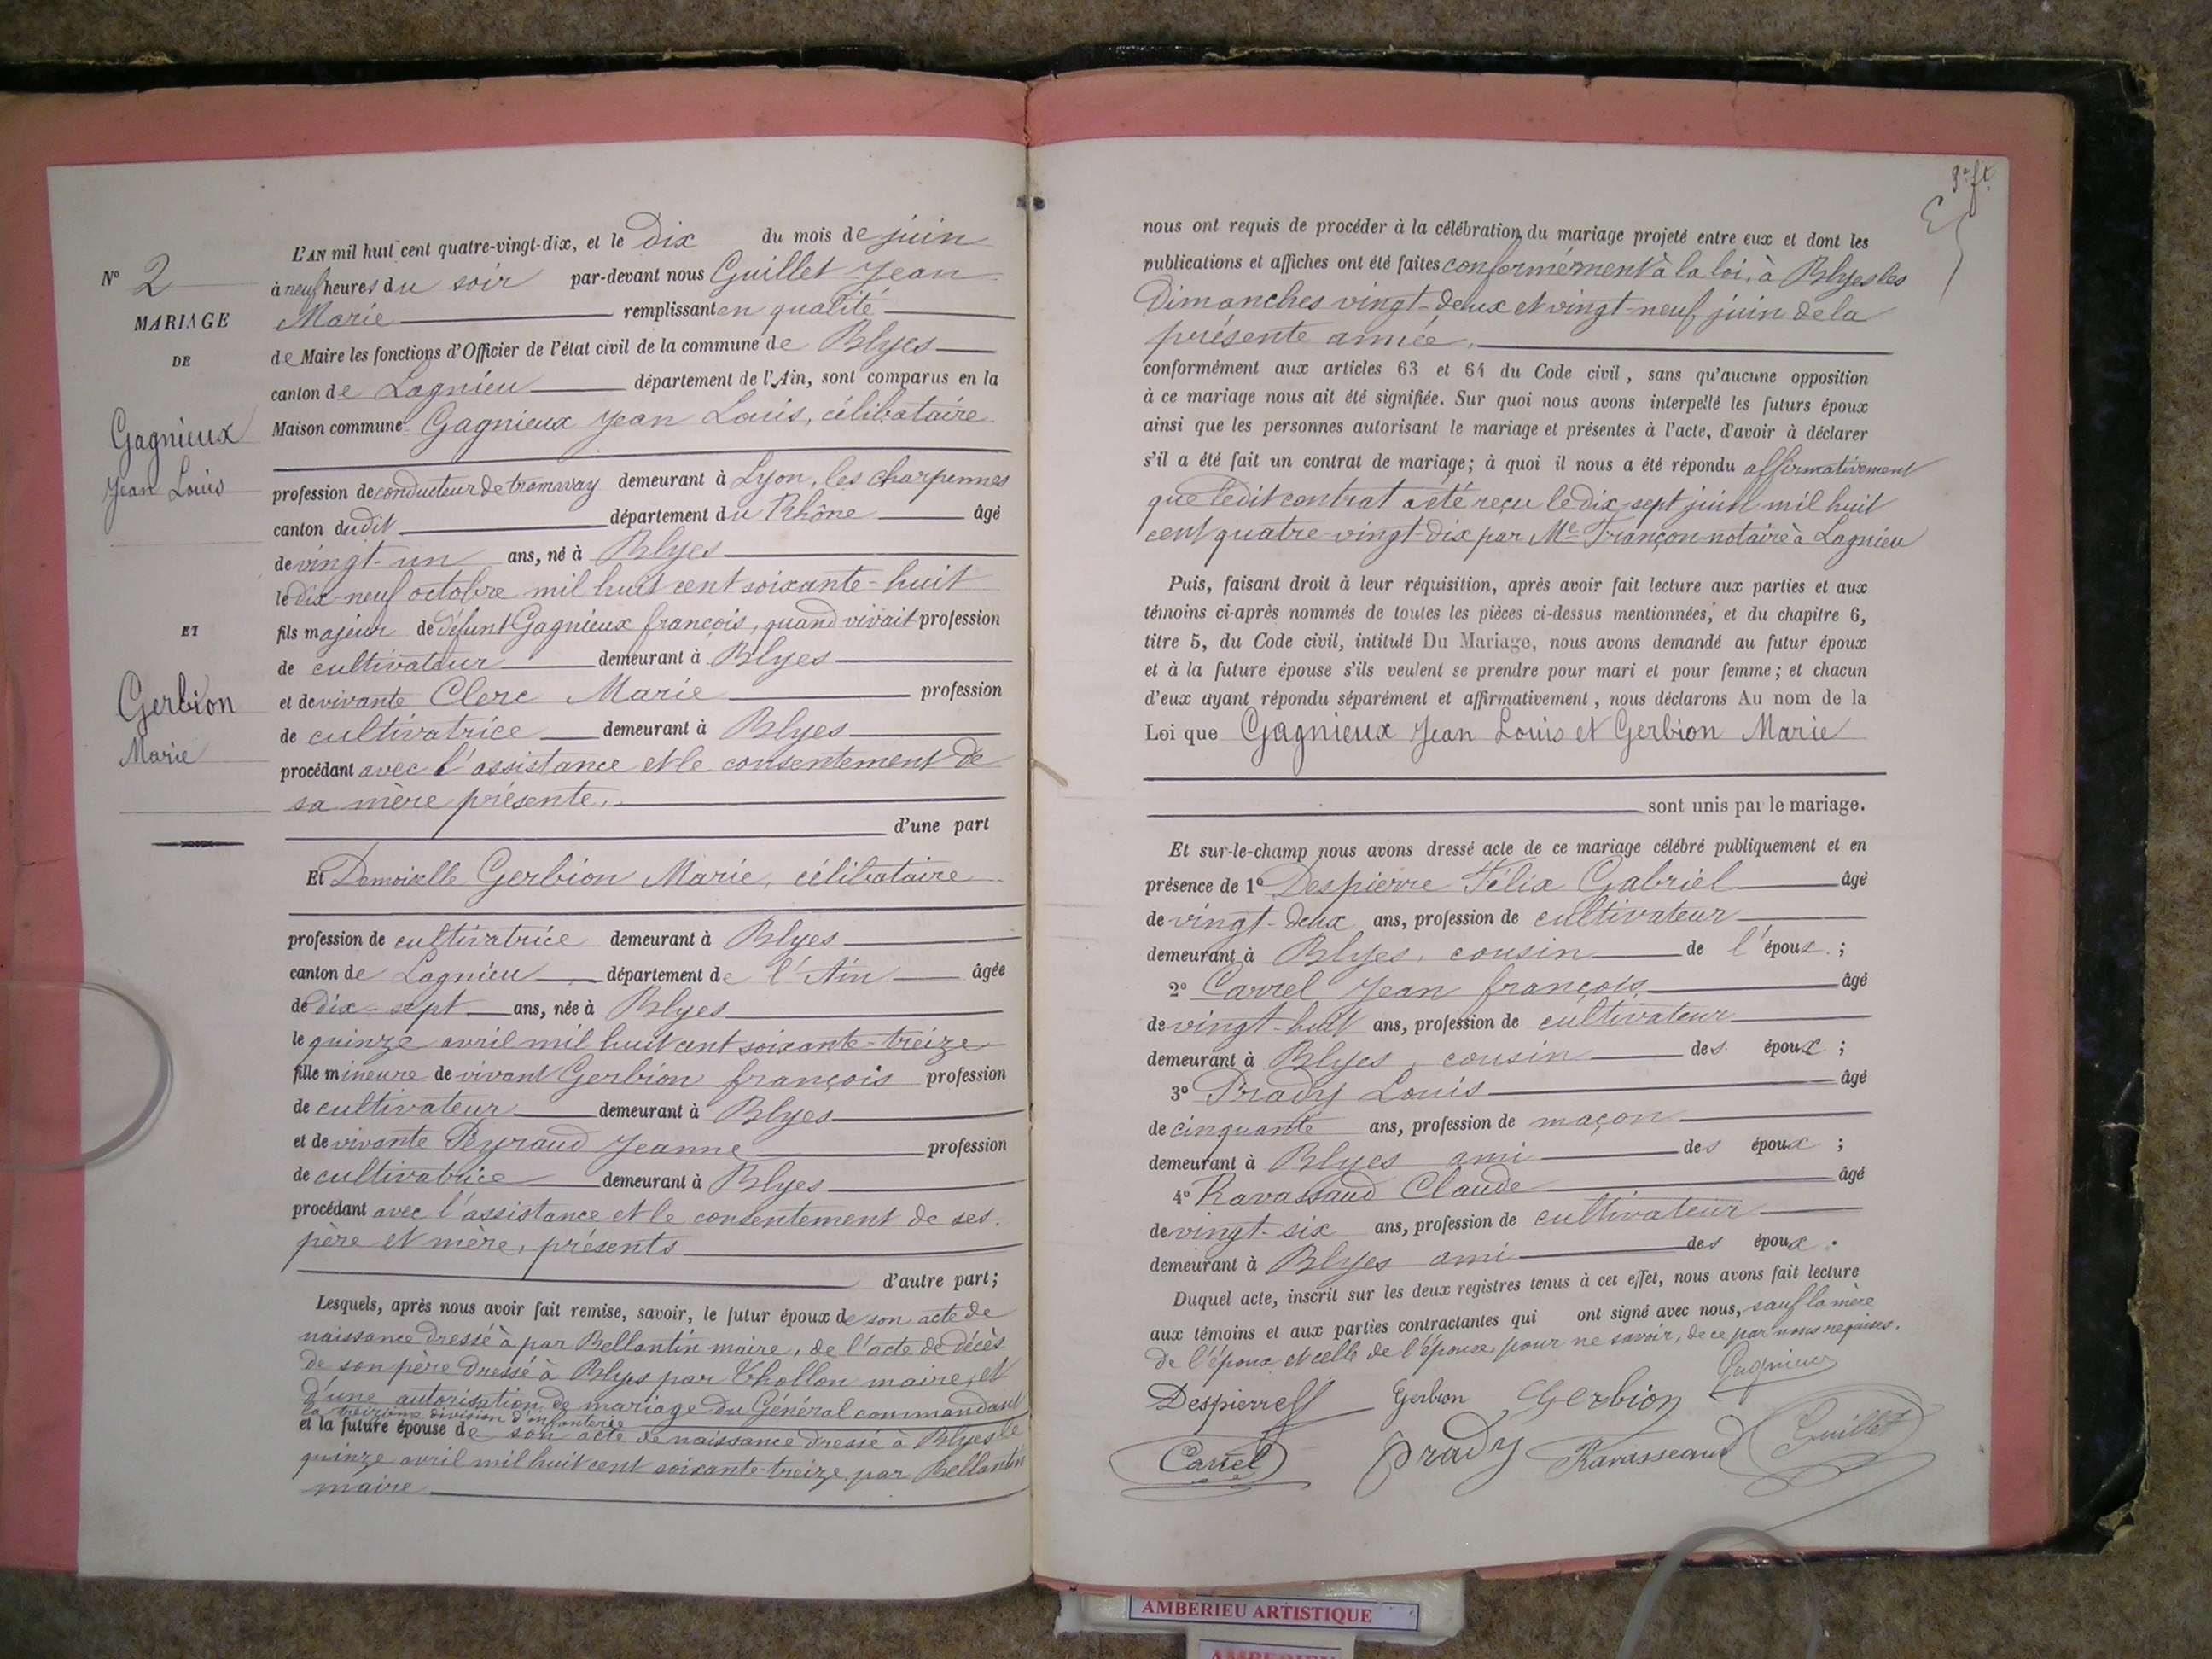 N° 2
MARIAGE
DE
Gagnieux
Jean Louis
ET
Gerbion
Marie
L'AN mil huit cent quatre-vingt-dix, et le Dix du mois de juin
à neuf heures du soir par-devant nous Guillet Jean
Marie remplissant en qualité
de Maire les fonctions d'Officier de l'état civil de la commune de Blyes
canton de Lagnieu département de l'Ain, sont comparus en la
Maison commune Gagnieux Jean Louis, célibataire
profession de conducteur de tramway demeurant à Lyon, les charpennes
canton dudit département du Rhône âgé
de vingt-un ans, né à Blyes
le dix-neuf octobre mil huit cent soixante-huit
fils majeur de défunt Gagnieux françois, quand vivait profession
de cultivateur demeurant à Blyes
et de vivante Clerc Marie profession
de cultivatrice demeurant à Blyes
procédant avec l'assistance et le consentement de
sa mère présente.
d'une part
Et Demoiselle Gerbion Marie, célibataire
profession de cultivatrice demeurant à Blyes
canton de Lagnieu département de l'Ain âgée
de dix-sept ans, née à Blyes
le quinze avril mil huit cent soixante-treize
fille mineure de vivant Gerbion françois profession
de cultivateur demeurant à Blyes
et de vivante Peyraud Jeanne profession
de cultivatrice demeurant à Blyes
procédant avec l'assistance et le consentement de ses
père et mère, présents
d'autre part;
Lesquels, après nous avoir fait remise, savoir, le futur époux de son acte de
naissance dressé à par Bellantin maire, de l'acte de décès
de son père dressé à Blyes par Thollon maire, et
d'une autorisation de mariage du Général commandant
la treizième division d'infanterie
et la future épouse de son acte de naissance dressé à Blyes le
quinze avril mil huit cent soixante-treize par Bellantin
maire
nous ont requis de procéder à la célébration du mariage projeté entre eux et dont les
publications et affiches ont été faites conformément à la loi, à Blyes les
Dimanches vingt-deux et vingt-neuf juin de la
présente année.
conformément aux articles 63 et 64 du Code civil, sans qu'aucune opposition
à ce mariage nous ait été signifiée. Sur quoi nous avons interpellé les futurs époux
ainsi que les personnes autorisant le mariage et présentes à l'acte, d'avoir à déclarer
s'il a été fait un contrat de mariage; à quoi il nous a été répondu affirmativement
que ledit contrat a été reçu le dix-sept juin mil huit
cent quatre-vingt-dix par Me Françon notaire à Lagnieu
Puis, faisant droit à leur réquisition, après avoir fait lecture aux parties et aux
témoins ci-après nommés de toutes les pièces ci-dessus mentionnées, et du chapitre 6,
titre 5, du Code civil, intitulé Du Mariage, nous avons demandé au futur époux
et à la future épouse s'ils veulent se prendre pour mari et pour femme; et chacun
d'eux ayant répondu séparément et affirmativement, nous déclarons Au nom de la
Loi que Gagnieux Jean Louis et Gerbion Marie
sont unis par le mariage.
Et sur-le-champ nous avons dressé acte de ce mariage célébré publiquement et en
présence de 1° Despierre Félix Gabriel âgé
de vingt-deux ans, profession de cultivateur
demeurant à Blyes, cousin de l'époux;
2° Carrel Jean françois âgé
de vingt-huit ans, profession de cultivateur
demeurant à Blyes, cousin des époux;
3° Prady Louis âgé
de cinquante ans, profession de maçon
demeurant à Blyes ami des époux;
4° Ravassaud Claude âgé
de vingt-six ans, profession de cultivateur
demeurant à Blyes ami des époux.
Duquel acte, inscrit sur les deux registres tenus à cet effet, nous avons fait lecture
aux témoins et aux parties contractantes qui ont signé avec nous, sauf la mère
de l'époux et celle de l'épouse, pour ne savoir, de ce par nous requises.
Despierre Gerbion Gerbion Gagnieux
Carrel Prady Ravasseaud Guillet
AMBERIEU ARTISTIQUE
AMBERIEU